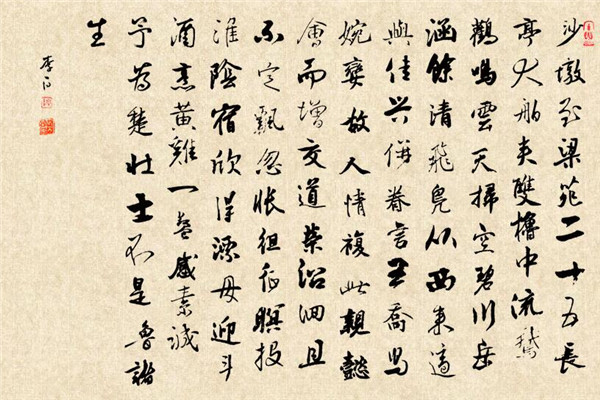 沙墩至梁苑二十五長
亭大舶夾雙櫓中流鵝
鸛鳴雲天掃空碧川岳
涵餘清飛鳧从西来適
與佳兴併眷言王喬舄
婉孌故人情複此親懿
會而增交道榮沿洄且
不定飄忽悵徂征暝投
淮陰宿欣得漂母迎斗
酒烹黃雞一餐感素誠
予為楚壮士不是魯諸
生
李白